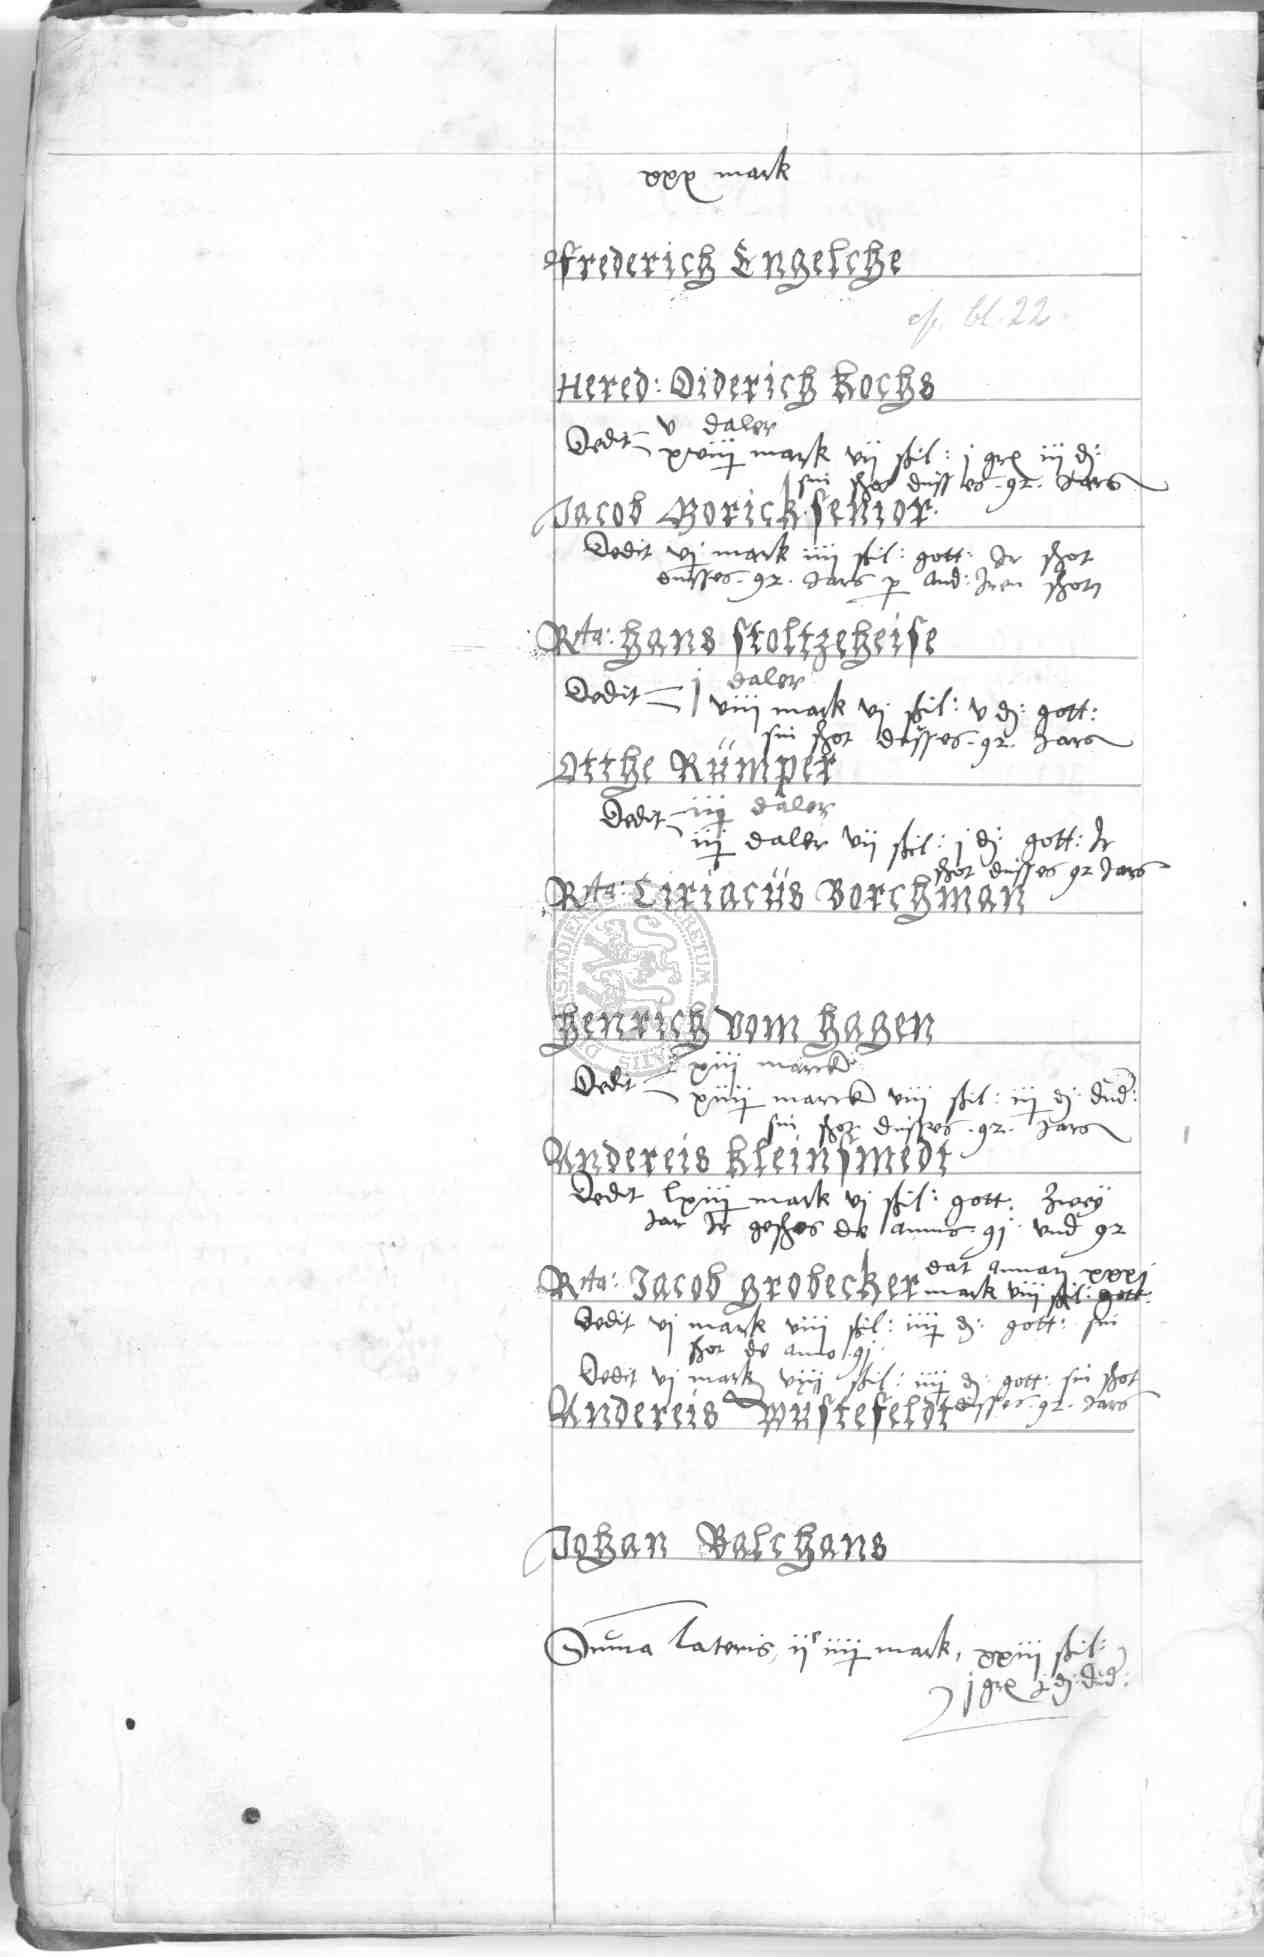 xxx mark
Frederich Engelche
cf. bl. 22
Hered: Diderich Kochs
v daler
Dedit xviij mark vij ßil: j grx iij dj:
sin schot dusses 92 Jars
Jacob Borick senior
Dedit vj mark iiij ßil: gott: Jr schot
dusses 92 Jars p and: Jren schotn
Rta: Hans Stoltzeheise
j daler
Dedit viij mark vj ßil: v dj: gott:
sin schot dusses 92 Jars
Otthe Rümper
iij daler
Dedit iij daler vij ßil: j dj: gott: Jr
schot dusses 92 Jars
Rta: Ciriacüs Borchman
Henrich vom Hagen
xiij marck
Dedit xiiij marck viij ßil: iij dj: dud:
sin schot dusses 92 Jars
Andereis Kleinsmedt
Dedit lxiij mark vj ßil: gott: zwey
Jar Jr geschos de annis 9j vnd 92
Rta: Jacob Grobecker dat xxxj
mark viij ßil: gott:
Dedit vj mark viij ßil: iiij dj: gott: sin
schot de anno 9j
Dedit vj mark viij ßil: iiij dj: gott: sin schot
dusses 92 Jars
Andereis Wüstefeldt
Johan Balchans
Summa lateris, ijc iiij mark, xxiij ßil:
j grx dj: dud: